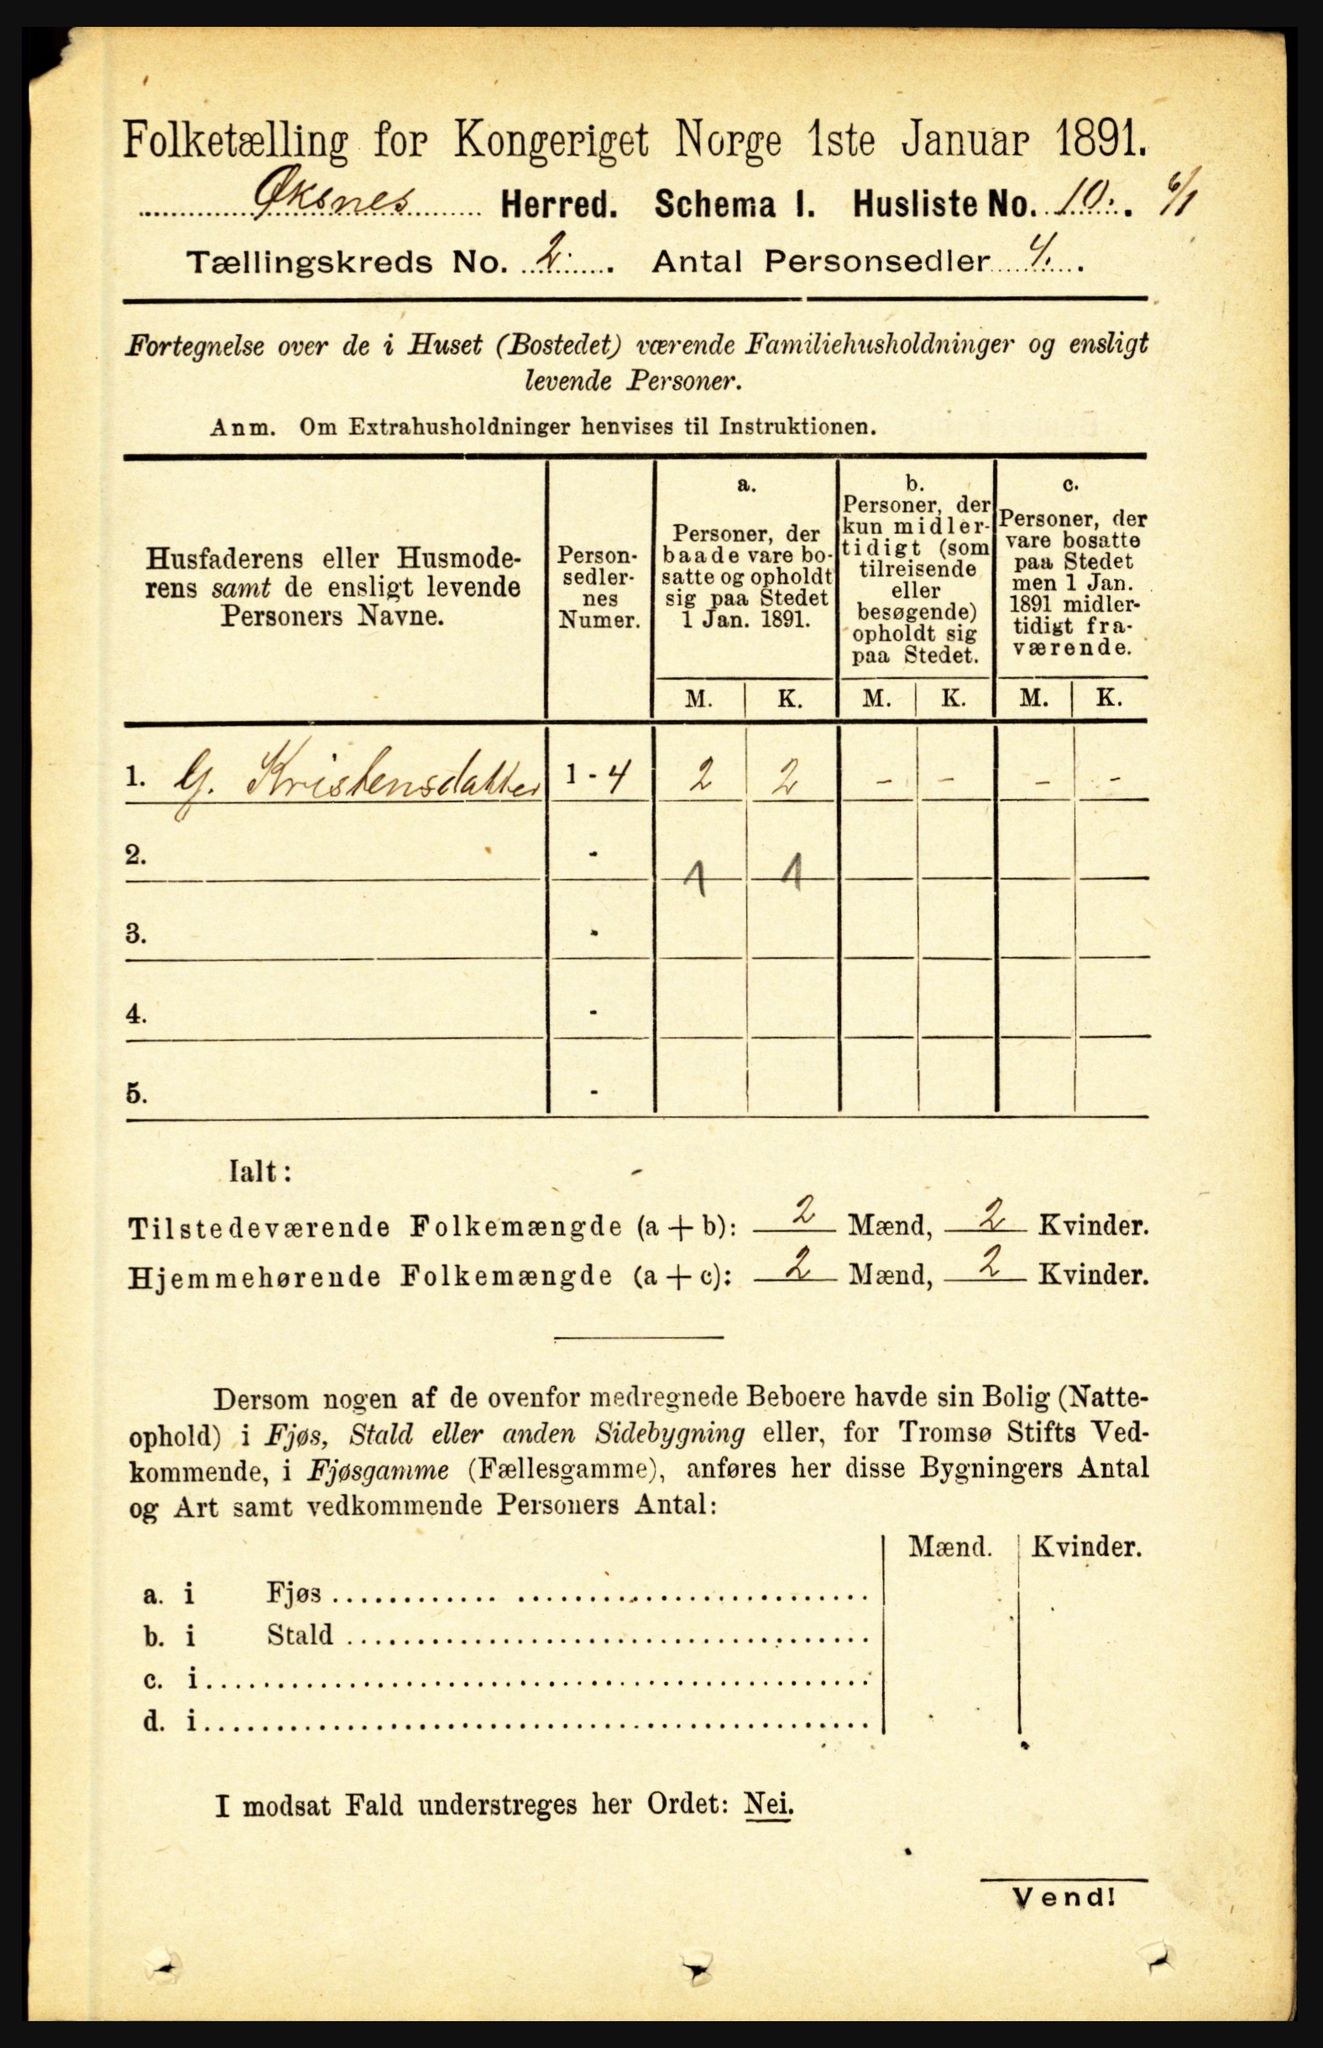 Folketælling for Kongeriget Norge 1ste Januar 1891.
Øksnes Herred. Schema I. Husliste No. 10. 6/1
Tællingskreds No. 2. Antal Personsedler 4.
Fortegnelse over de i Huset (Bostedet) værende Familiehusholdninger og ensligt
levende Personer.
Anm. Om Extrahusholdninger henvises til Instruktionen.
Husfaderens eller Husmode-
rens samt de ensligt levende
Personers Navne.
Person-
sedler-
nes
Numer.
a.
Personer, der
baade vare bo-
satte og opholdt
sig paa Stedet
1 Jan. 1891.
b.
Personer, der
kun midler-
tidigt (som
tilreisende
eller
besøgende)
opholdt sig
paa Stedet.
c.
Personer, der
vare bosatte
paa Stedet
men 1 Jan.
1891 midler-
tidigt fra-
værende.
M. K. M. K. M. K.
1. G. Kristensdatter 1 - 4 2 2 - - - -
2. - 1 1
3. -
4. -
5. -
Ialt:
Tilstedeværende Folkemængde (a + b): 2 Mænd, 2 Kvinder.
Hjemmehørende Folkemængde (a + c): 2 Mænd, 2 Kvinder.
Dersom nogen af de ovenfor medregnede Beboere havde sin Bolig (Natte-
ophold) i Fjøs, Stald eller anden Sidebygning eller, for Tromsø Stifts Ved-
kommende, i Fjøsgamme (Fællesgamme), anføres her disse Bygningers Antal
og Art samt vedkommende Personers Antal:
Mænd. Kvinder.
a. i Fjøs
b. i Stald
c. i
d. i
I modsat Fald understreges her Ordet: Nei.
Vend!